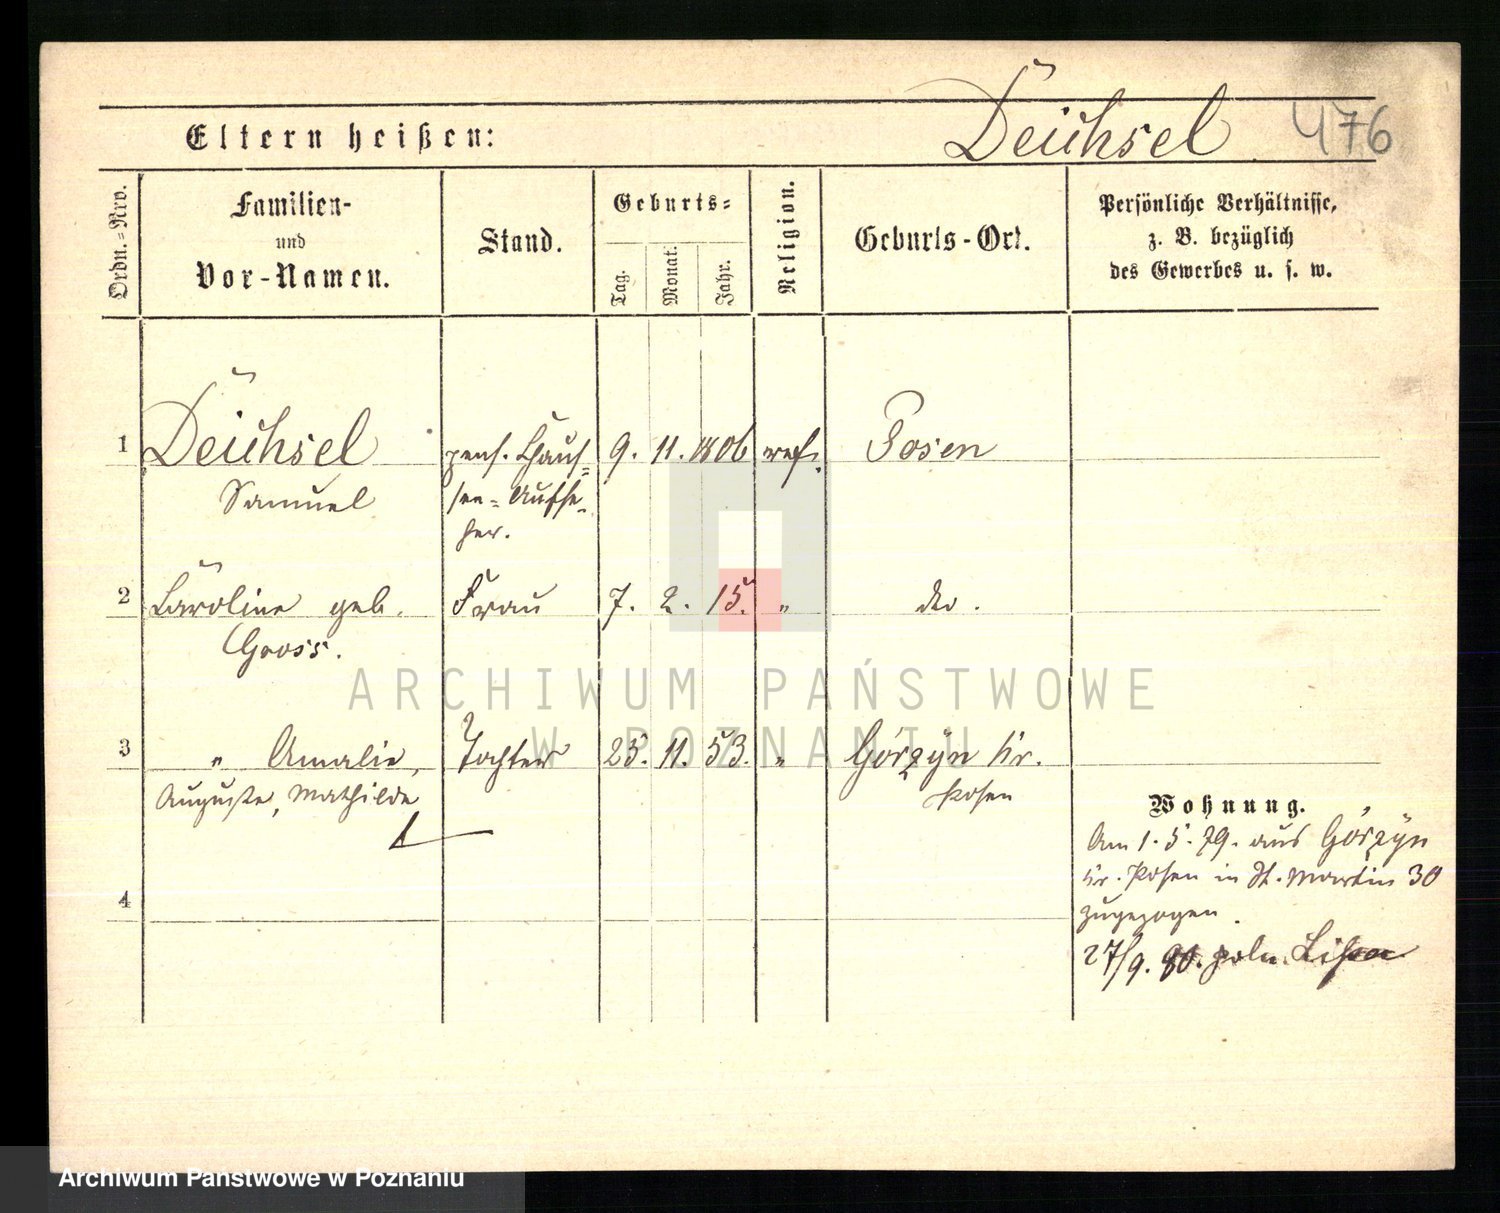 Eltern heißen:
Deichsel 476
Ordn.=Nro.
Familien-
und
Vor-Namen.
Stand.
Geburts=
Tag.
Monat.
Jahr.
Religion.
Geburts-Ort.
Persönliche Verhältnisse,
z. B. bezüglich
des Gewerbes u. s. w.
1 Deichsel pens. Chaus= 9. 11. 1806 ref. Posen
Samuel seen=Aufse=
her.
2 Caroline geb. Frau 7. 2. 15. " do.
Gross.
3 " Amalie, Tochter 25. 11. 53. " Górzyn Kr.
Auguste, Mathilde Posen
4
Wohnung.
Am 1. 5. 79. aus Górzyn
Kr. Posen in St. Martin 30
zugezogen.
27/9. 80. poln. Lissa
ARCHIWUM PAŃSTWOWE
W POZNANIU
Archiwum Państwowe w Poznaniu